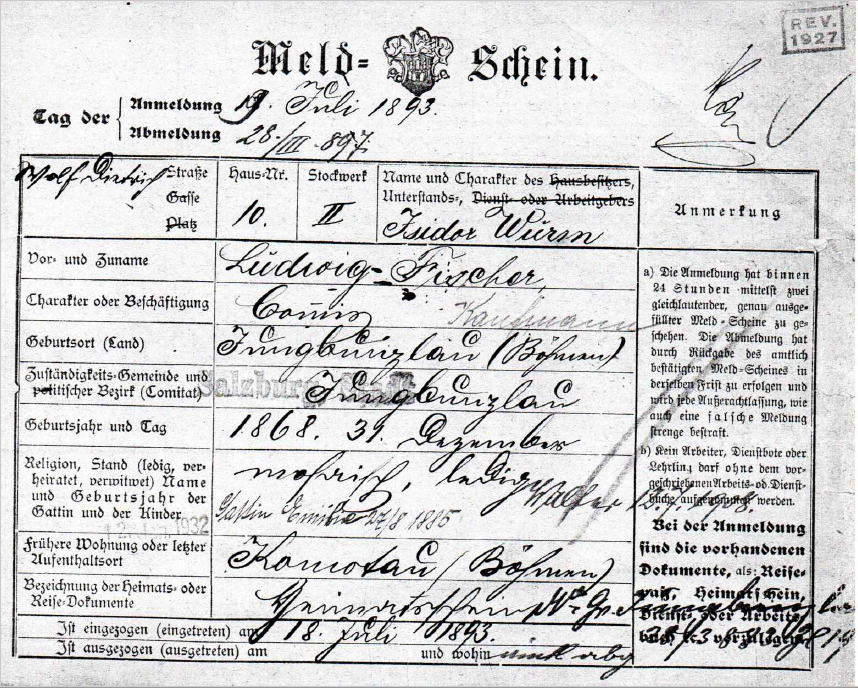 REV.
1927
Meld-Schein.
Tag der
Anmeldung 19. Juli 1893.
Abmeldung 28./III 897.
Wolf Dietrich Straße
Gasse
Platz
Haus-Nr.
10.
Stockwerk
II
Name und Charakter des Hausbesitzers,
Unterstands-, Dienst- oder Arbeitgebers
Isidor Wurm
Anmerkung
Vor- und Zuname
Ludwig Fischer
Charakter oder Beschäftigung
Commis
Kaufmann
Geburtsort (Land)
Jungbunzlau (Böhmen)
Zuständigkeits-Gemeinde und
politischer Bezirk (Comitat)
Salzburg Stadt
Jungbunzlau
Geburtsjahr und Tag
1868. 31. Dezember
Religion, Stand (ledig, ver-
heiratet, verwitwet) Name
und Geburtsjahr der
Gattin und der Kinder
mosaisch, ledig
Walter
Gattin Emilie 27/8 1885
1932
Frühere Wohnung oder letzter
Aufenthaltsort
Komotau (Böhmen)
Bezeichnung der Heimats- oder
Reise-Dokumente
Heimatschein
Ist eingezogen (eingetreten) am 18. Juli 1893.
Ist ausgezogen (ausgetreten) am
und wohin
a) Die Anmeldung hat binnen
24 Stunden mittelst zwei
gleichlautender, genau ausge-
füllter Meld-Scheine zu ge-
schehen. Die Abmeldung hat
durch Rückgabe des amtlich
bestätigten Meld-Scheines in
derselben Frist zu erfolgen und
wird jede Außerachtlassung, wie
auch eine falsche Meldung
strenge bestraft.
b) Kein Arbeiter, Dienstbote oder
Lehrling darf ohne dem vor-
geschriebenen Arbeits- od. Dienst-
buche aufgenommen werden.
Bei der Anmeldung
sind die vorhandenen
Dokumente, als: Reise-
paß, Heimatschein,
Dienst- oder Arbeits-
buch etc. vorzulegen.